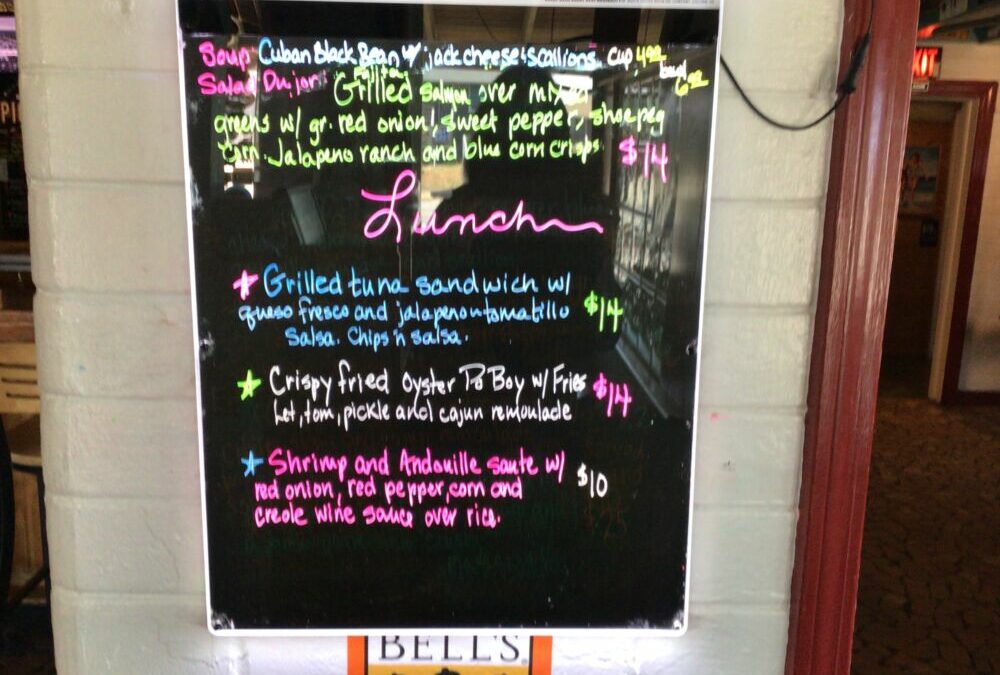 Soup Cuban Black Bean w/ jack cheese & scallions. cup 4.00 bowl 6.00
Salad Du jor
Grilled salmon over mixed
greens w/ gr. red onion, sweet pepper, shoepeg
corn. Jalapeno ranch and blue corn crisps. $14
Lunch
Grilled tuna sandwich w/
queso fresco and jalapeno tomatillo $14
Salsa. Chips n salsa.
Crispy fried oyster Po Boy w/ Fries $14
Let, tom, pickle and cajun remoulade
Shrimp and Andouille saute w/
red onion, red pepper, corn and $10
creole wine sauce over rice.
BELL'S
EXIT